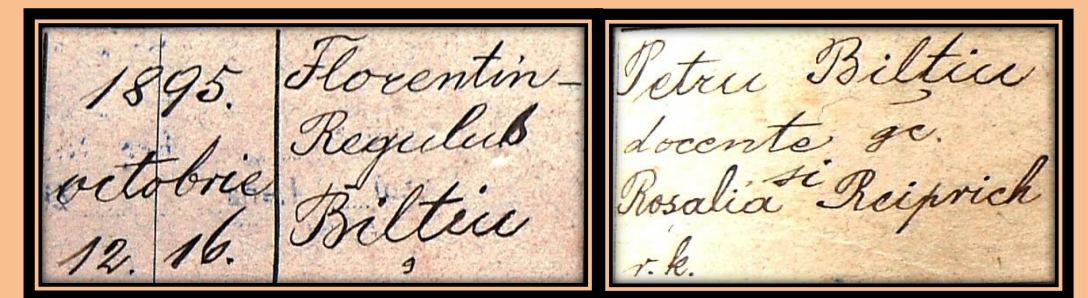 1895.
octobrie
12. 16.
Florentin-
Regulus
Bilțiu
Petru Bilțiu
docente gc.
și
Rosalia Reiprich
r. k.